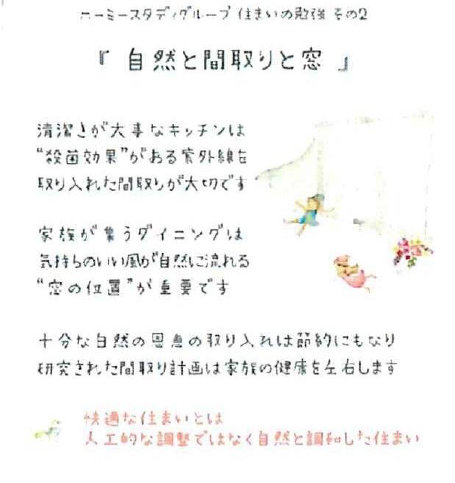 ホーミースタディグループ 住まいの勉強 その2
『 自然と間取りと窓 』
清潔さが大事なキッチンは
“殺菌効果”がある紫外線を
取り入れた間取りが大切です
家族が集うダイニングは
気持ちのいい風が自然に流れる
“窓の位置”が重要です
十分な自然の恩恵の取り入れは節約にもなり
研究された間取り計画は家族の健康を左右します
快適な住まいとは
人工的な調整ではなく自然と調和した住まい